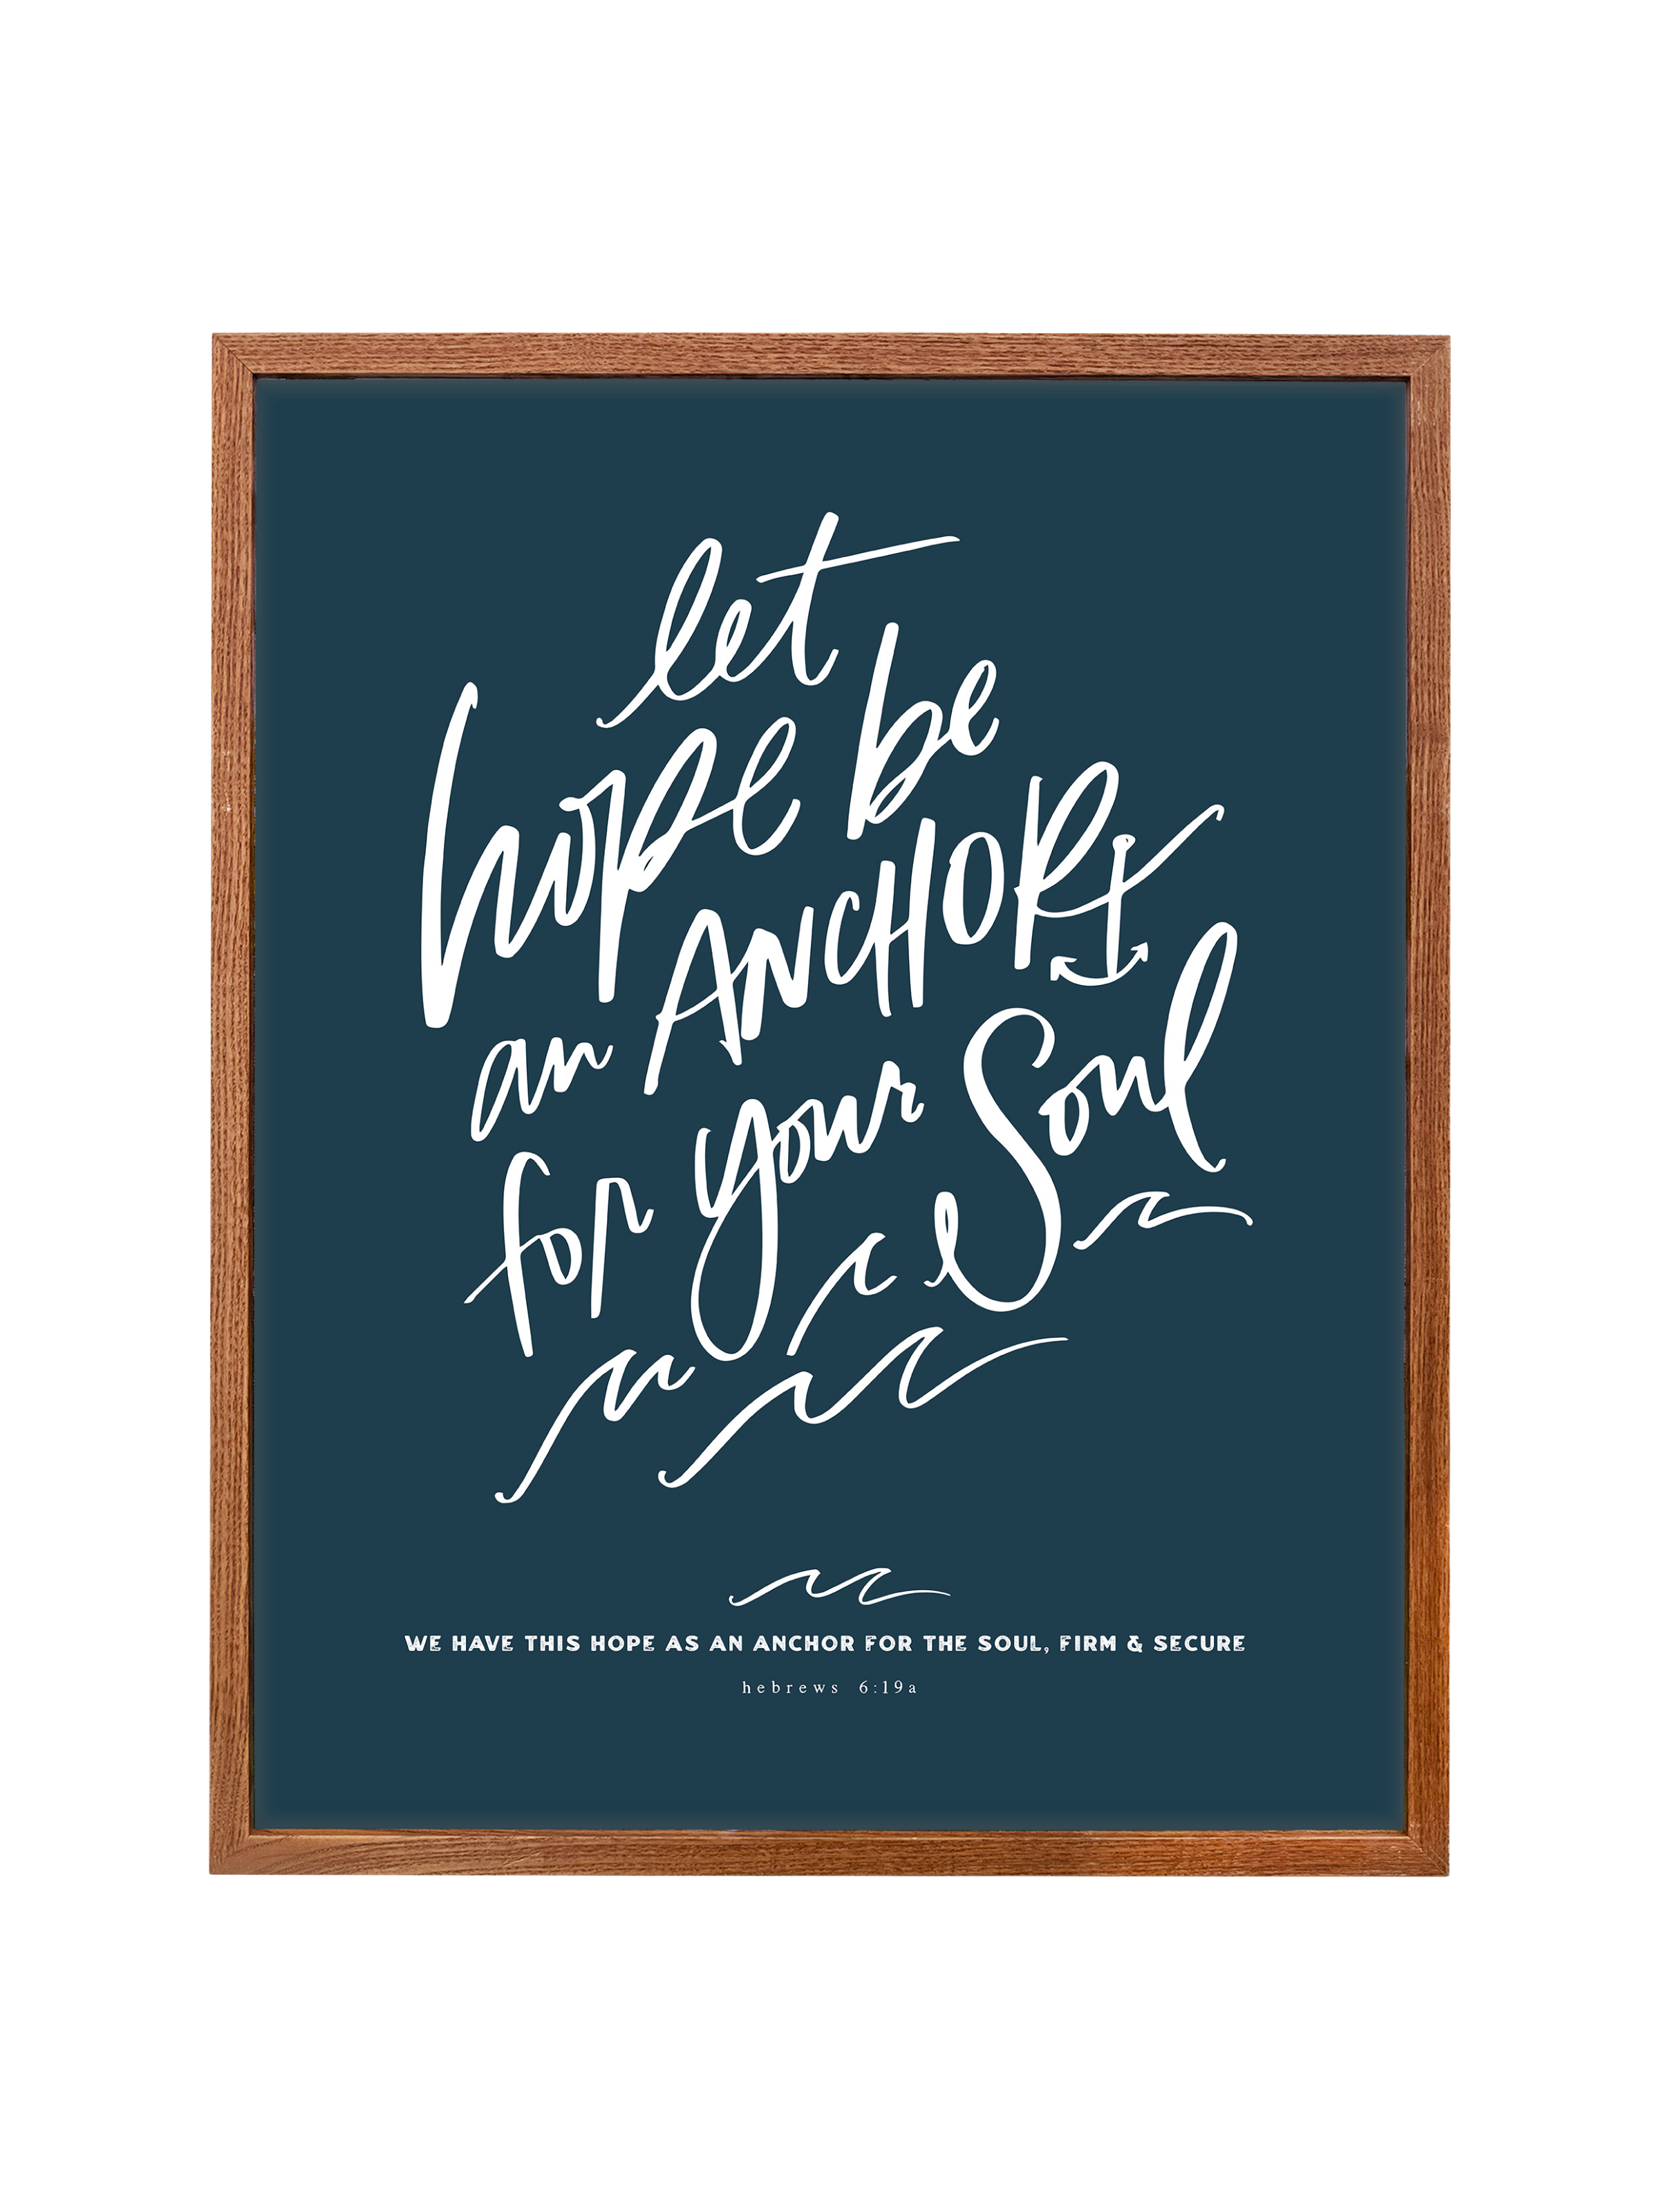 let
hope be
an ANCHOR
for your Soul
WE HAVE THIS HOPE AS AN ANCHOR FOR THE SOUL, FIRM & SECURE
hebrews 6:19a